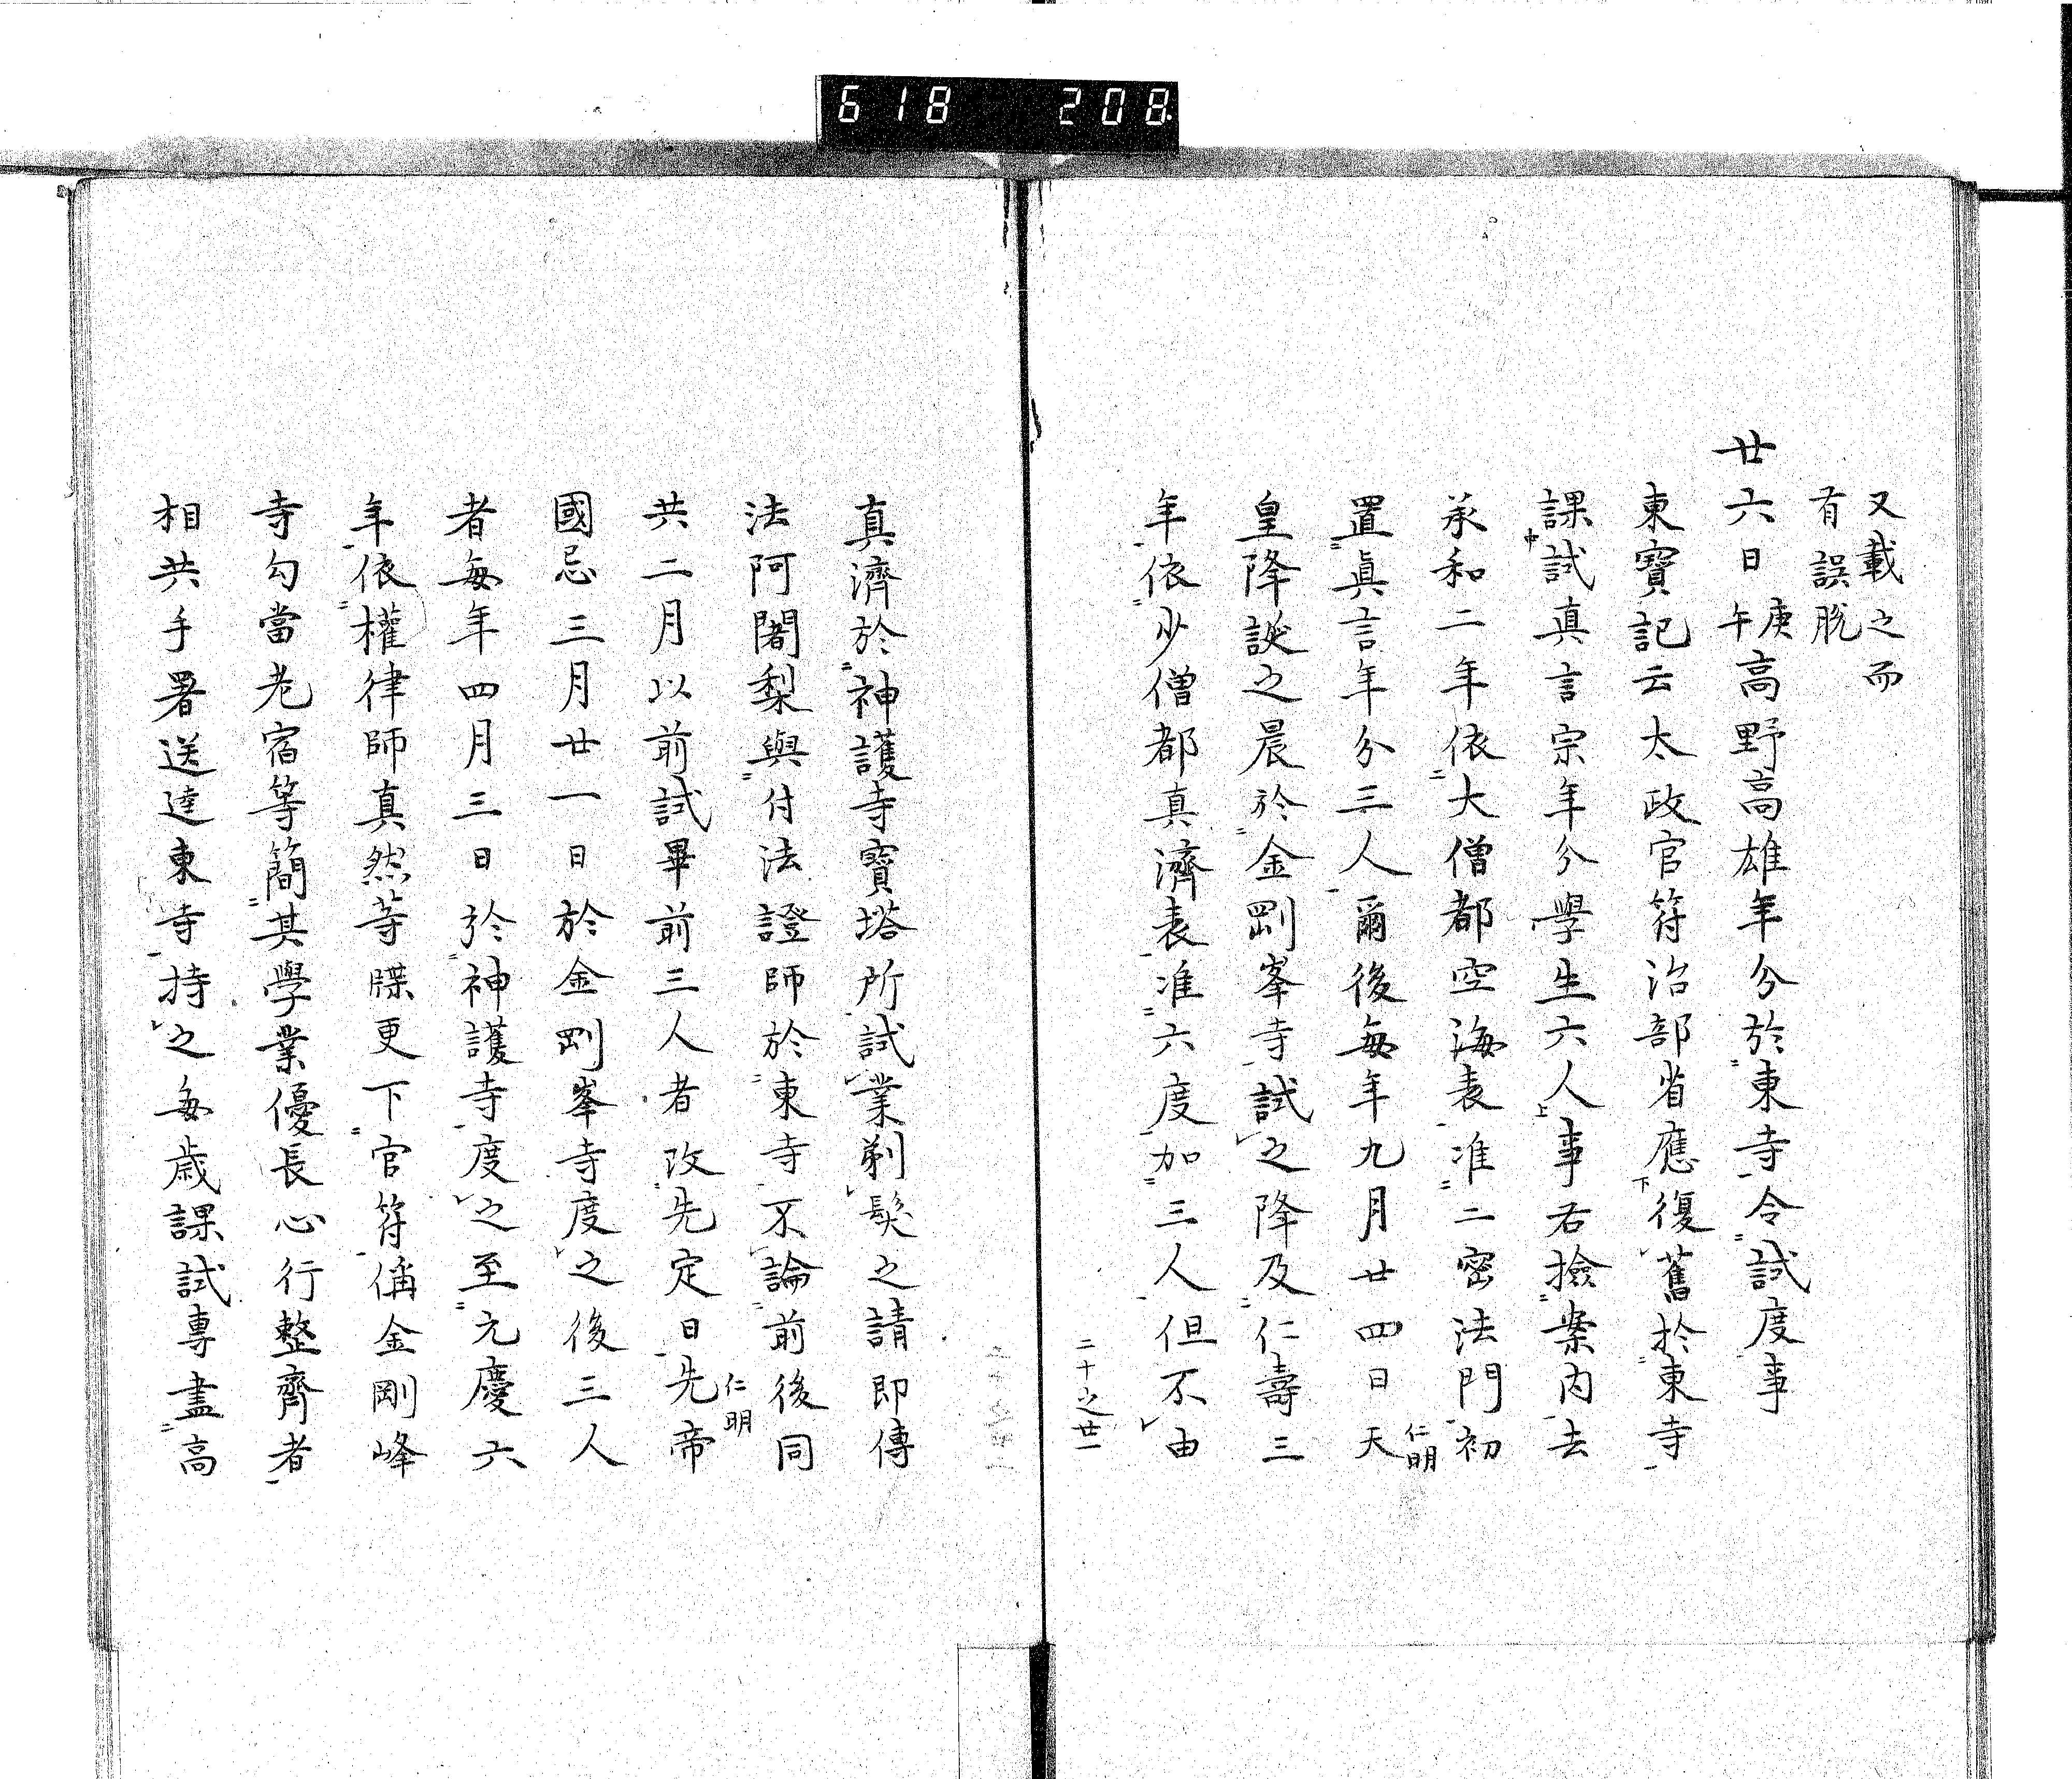 618 208
又載之而
有誤脱
廿六日庚午高野高雄年分於東寺令試度事
東寳記云太政官符治部省應復舊於東寺
課試真言宗年分學生六人事右撿案内去
承和二年依大僧都空海表准二密法門初
置眞言年分三人爾後毎年九月廿四日天仁明
皇降誕之晨於金剛峯寺試之降及仁壽三
年依少僧都真濟表准六度加三人但不由
二十之廿一
真濟於神護寺寳塔所試業剃髮之請即傳
法阿闍梨與付法證師於東寺不論前後同
共二月以前試畢前三人者改先定日先帝仁明
國忌三月廿一日於金剛峯寺度之後三人
者毎年四月三日於神護寺度之至元慶六
年依權律師真然等牒更下官符偁金剛峰
寺勾當老宿等簡其學業優長心行整齊者
相共手署送逹東寺持之毎歳課試專盡高